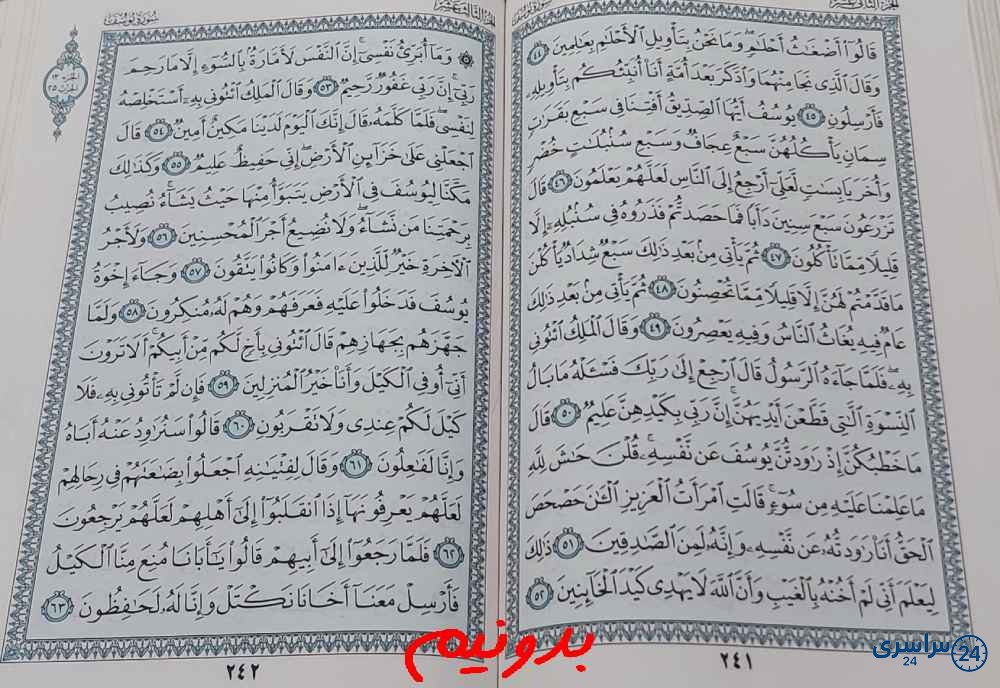 الجزء الثاني عشر
سورة يوسف
قَالُوٓا۟ أَضْغَٰثُ أَحْلَٰمٍ ۖ وَمَا نَحْنُ بِتَأْوِيلِ ٱلْأَحْلَٰمِ بِعَٰلِمِينَ ٤٤
وَقَالَ ٱلَّذِى نَجَا مِنْهُمَا وَٱدَّكَرَ بَعْدَ أُمَّةٍ أَنَا۠ أُنَبِّئُكُم بِتَأْوِيلِهِۦ
فَأَرْسِلُونِ ٤٥ يُوسُفُ أَيُّهَا ٱلصِّدِّيقُ أَفْتِنَا فِى سَبْعِ بَقَرَٰتٍ
سِمَانٍ يَأْكُلُهُنَّ سَبْعٌ عِجَافٌ وَسَبْعِ سُنۢبُلَٰتٍ خُضْرٍ
وَأُخَرَ يَابِسَٰتٍ لَّعَلِّىٓ أَرْجِعُ إِلَى ٱلنَّاسِ لَعَلَّهُمْ يَعْلَمُونَ ٤٦ قَالَ
تَزْرَعُونَ سَبْعَ سِنِينَ دَأَبًا فَمَا حَصَدتُّمْ فَذَرُوهُ فِى سُنۢبُلِهِۦٓ إِلَّا
قَلِيلًا مِّمَّا تَأْكُلُونَ ٤٧ ثُمَّ يَأْتِى مِنۢ بَعْدِ ذَٰلِكَ سَبْعٌ شِدَادٌ يَأْكُلْنَ
مَا قَدَّمْتُمْ لَهُنَّ إِلَّا قَلِيلًا مِّمَّا تُحْصِنُونَ ٤٨ ثُمَّ يَأْتِى مِنۢ بَعْدِ ذَٰلِكَ
عَامٌ فِيهِ يُغَاثُ ٱلنَّاسُ وَفِيهِ يَعْصِرُونَ ٤٩ وَقَالَ ٱلْمَلِكُ ٱئْتُونِى
بِهِۦ ۖ فَلَمَّا جَآءَهُ ٱلرَّسُولُ قَالَ ٱرْجِعْ إِلَىٰ رَبِّكَ فَسْـَٔلْهُ مَا بَالُ
ٱلنِّسْوَةِ ٱلَّٰتِى قَطَّعْنَ أَيْدِيَهُنَّ ۚ إِنَّ رَبِّى بِكَيْدِهِنَّ عَلِيمٌ ٥٠ قَالَ
مَا خَطْبُكُنَّ إِذْ رَٰوَدتُّنَّ يُوسُفَ عَن نَّفْسِهِۦ ۚ قُلْنَ حَٰشَ لِلَّهِ
مَا عَلِمْنَا عَلَيْهِ مِن سُوٓءٍ ۚ قَالَتِ ٱمْرَأَتُ ٱلْعَزِيزِ ٱلْـَٰٔنَ حَصْحَصَ
ٱلْحَقُّ أَنَا۠ رَٰوَدتُّهُۥ عَن نَّفْسِهِۦ وَإِنَّهُۥ لَمِنَ ٱلصَّٰدِقِينَ ٥١ ذَٰلِكَ
لِيَعْلَمَ أَنِّى لَمْ أَخُنْهُ بِٱلْغَيْبِ وَأَنَّ ٱللَّهَ لَا يَهْدِى كَيْدَ ٱلْخَآئِنِينَ ٥٢
٢٤١
سورة يوسف
الجزء ١٣
الحزب ٢٥
وَمَآ أُبَرِّئُ نَفْسِىٓ ۚ إِنَّ ٱلنَّفْسَ لَأَمَّارَةٌۢ بِٱلسُّوٓءِ إِلَّا مَا رَحِمَ
رَبِّىٓ ۚ إِنَّ رَبِّى غَفُورٌ رَّحِيمٌ ٥٣ وَقَالَ ٱلْمَلِكُ ٱئْتُونِى بِهِۦٓ أَسْتَخْلِصْهُ
لِنَفْسِى ۖ فَلَمَّا كَلَّمَهُۥ قَالَ إِنَّكَ ٱلْيَوْمَ لَدَيْنَا مَكِينٌ أَمِينٌ ٥٤ قَالَ
ٱجْعَلْنِى عَلَىٰ خَزَآئِنِ ٱلْأَرْضِ ۖ إِنِّى حَفِيظٌ عَلِيمٌ ٥٥ وَكَذَٰلِكَ
مَكَّنَّا لِيُوسُفَ فِى ٱلْأَرْضِ يَتَبَوَّأُ مِنْهَا حَيْثُ يَشَآءُ ۚ نُصِيبُ
بِرَحْمَتِنَا مَن نَّشَآءُ ۖ وَلَا نُضِيعُ أَجْرَ ٱلْمُحْسِنِينَ ٥٦ وَلَأَجْرُ
ٱلْءَاخِرَةِ خَيْرٌ لِّلَّذِينَ ءَامَنُوا۟ وَكَانُوا۟ يَتَّقُونَ ٥٧ وَجَآءَ إِخْوَةُ
يُوسُفَ فَدَخَلُوا۟ عَلَيْهِ فَعَرَفَهُمْ وَهُمْ لَهُۥ مُنكِرُونَ ٥٨ وَلَمَّا
جَهَّزَهُم بِجَهَازِهِمْ قَالَ ٱئْتُونِى بِأَخٍ لَّكُم مِّنْ أَبِيكُمْ ۚ أَلَا تَرَوْنَ
أَنِّىٓ أُوفِى ٱلْكَيْلَ وَأَنَا۠ خَيْرُ ٱلْمُنزِلِينَ ٥٩ فَإِن لَّمْ تَأْتُونِى بِهِۦ فَلَا
كَيْلَ لَكُمْ عِندِى وَلَا تَقْرَبُونِ ٦٠ قَالُوا۟ سَنُرَٰوِدُ عَنْهُ أَبَاهُ
وَإِنَّا لَفَٰعِلُونَ ٦١ وَقَالَ لِفِتْيَٰنِهِ ٱجْعَلُوا۟ بِضَٰعَتَهُمْ فِى رِحَالِهِمْ
لَعَلَّهُمْ يَعْرِفُونَهَآ إِذَا ٱنقَلَبُوٓا۟ إِلَىٰٓ أَهْلِهِمْ لَعَلَّهُمْ يَرْجِعُونَ
٦٢ فَلَمَّا رَجَعُوٓا۟ إِلَىٰٓ أَبِيهِمْ قَالُوا۟ يَٰٓأَبَانَا مُنِعَ مِنَّا ٱلْكَيْلُ
فَأَرْسِلْ مَعَنَآ أَخَانَا نَكْتَلْ وَإِنَّا لَهُۥ لَحَٰفِظُونَ ٦٣
٢٤٢
بدونیم
سراسری 24
24